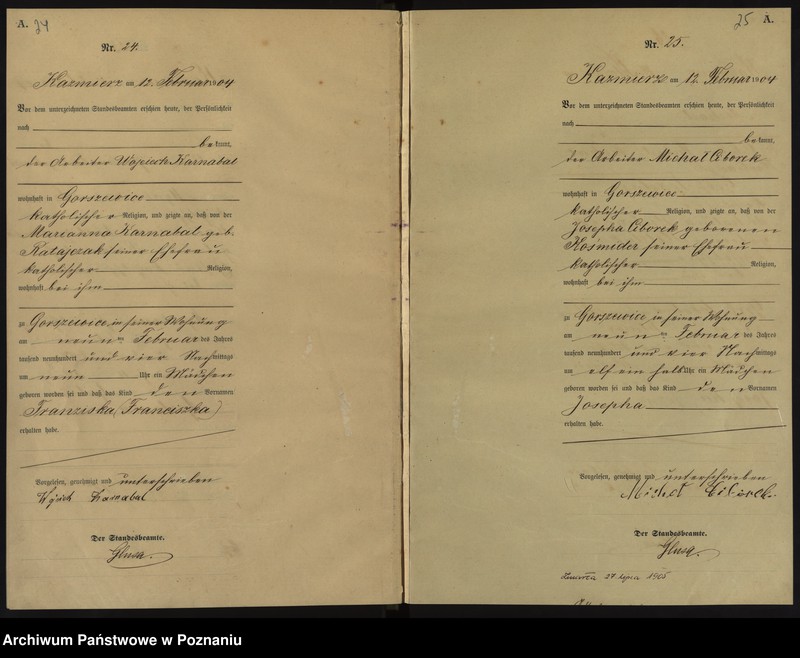 A. 24
Nr. 24.
Kazmierz am 12. Februar 1904
Vor dem unterzeichneten Standesbeamten erschien heute, der Persönlichkeit
nach
bekannt,
der Arbeiter Wojciech Karnabal
wohnhaft in Gorszewice
katholischer Religion, und zeigte an, daß von der
Marianna Karnabal geb.
Ratajczak seiner Ehefrau
katholischer Religion,
wohnhaft bei ihm
zu Gorszewice in seiner Wohnung
am neun ten Februar des Jahres
tausend neunhundert und vier Nachmittags
um neun Uhr ein Mädchen
geboren worden sei und daß das Kind den Vornamen
Franziska (Franciszka)
erhalten habe.
Vorgelesen, genehmigt und unterschrieben
Karnabal
Der Standesbeamte.
25 A.
Nr. 25.
Kazmierz am 12. Februar 1904
Vor dem unterzeichneten Standesbeamten erschien heute, der Persönlichkeit
nach
bekannt,
der Arbeiter Michał Ciborek
wohnhaft in Gorszewice
katholischer Religion, und zeigte an, daß von der
Josepha Ciborek geborenen
Kośmider seiner Ehefrau
katholischer Religion,
wohnhaft bei ihm
zu Gorszewice in seiner Wohnung
am neun ten Februar des Jahres
tausend neunhundert und vier Nachmittags
um elf ein halb Uhr ein Mädchen
geboren worden sei und daß das Kind den Vornamen
Josepha
erhalten habe.
Vorgelesen, genehmigt und unterschrieben
Michał Ciborek.
Der Standesbeamte.
27 lipca 1905
Archiwum Państwowe w Poznaniu